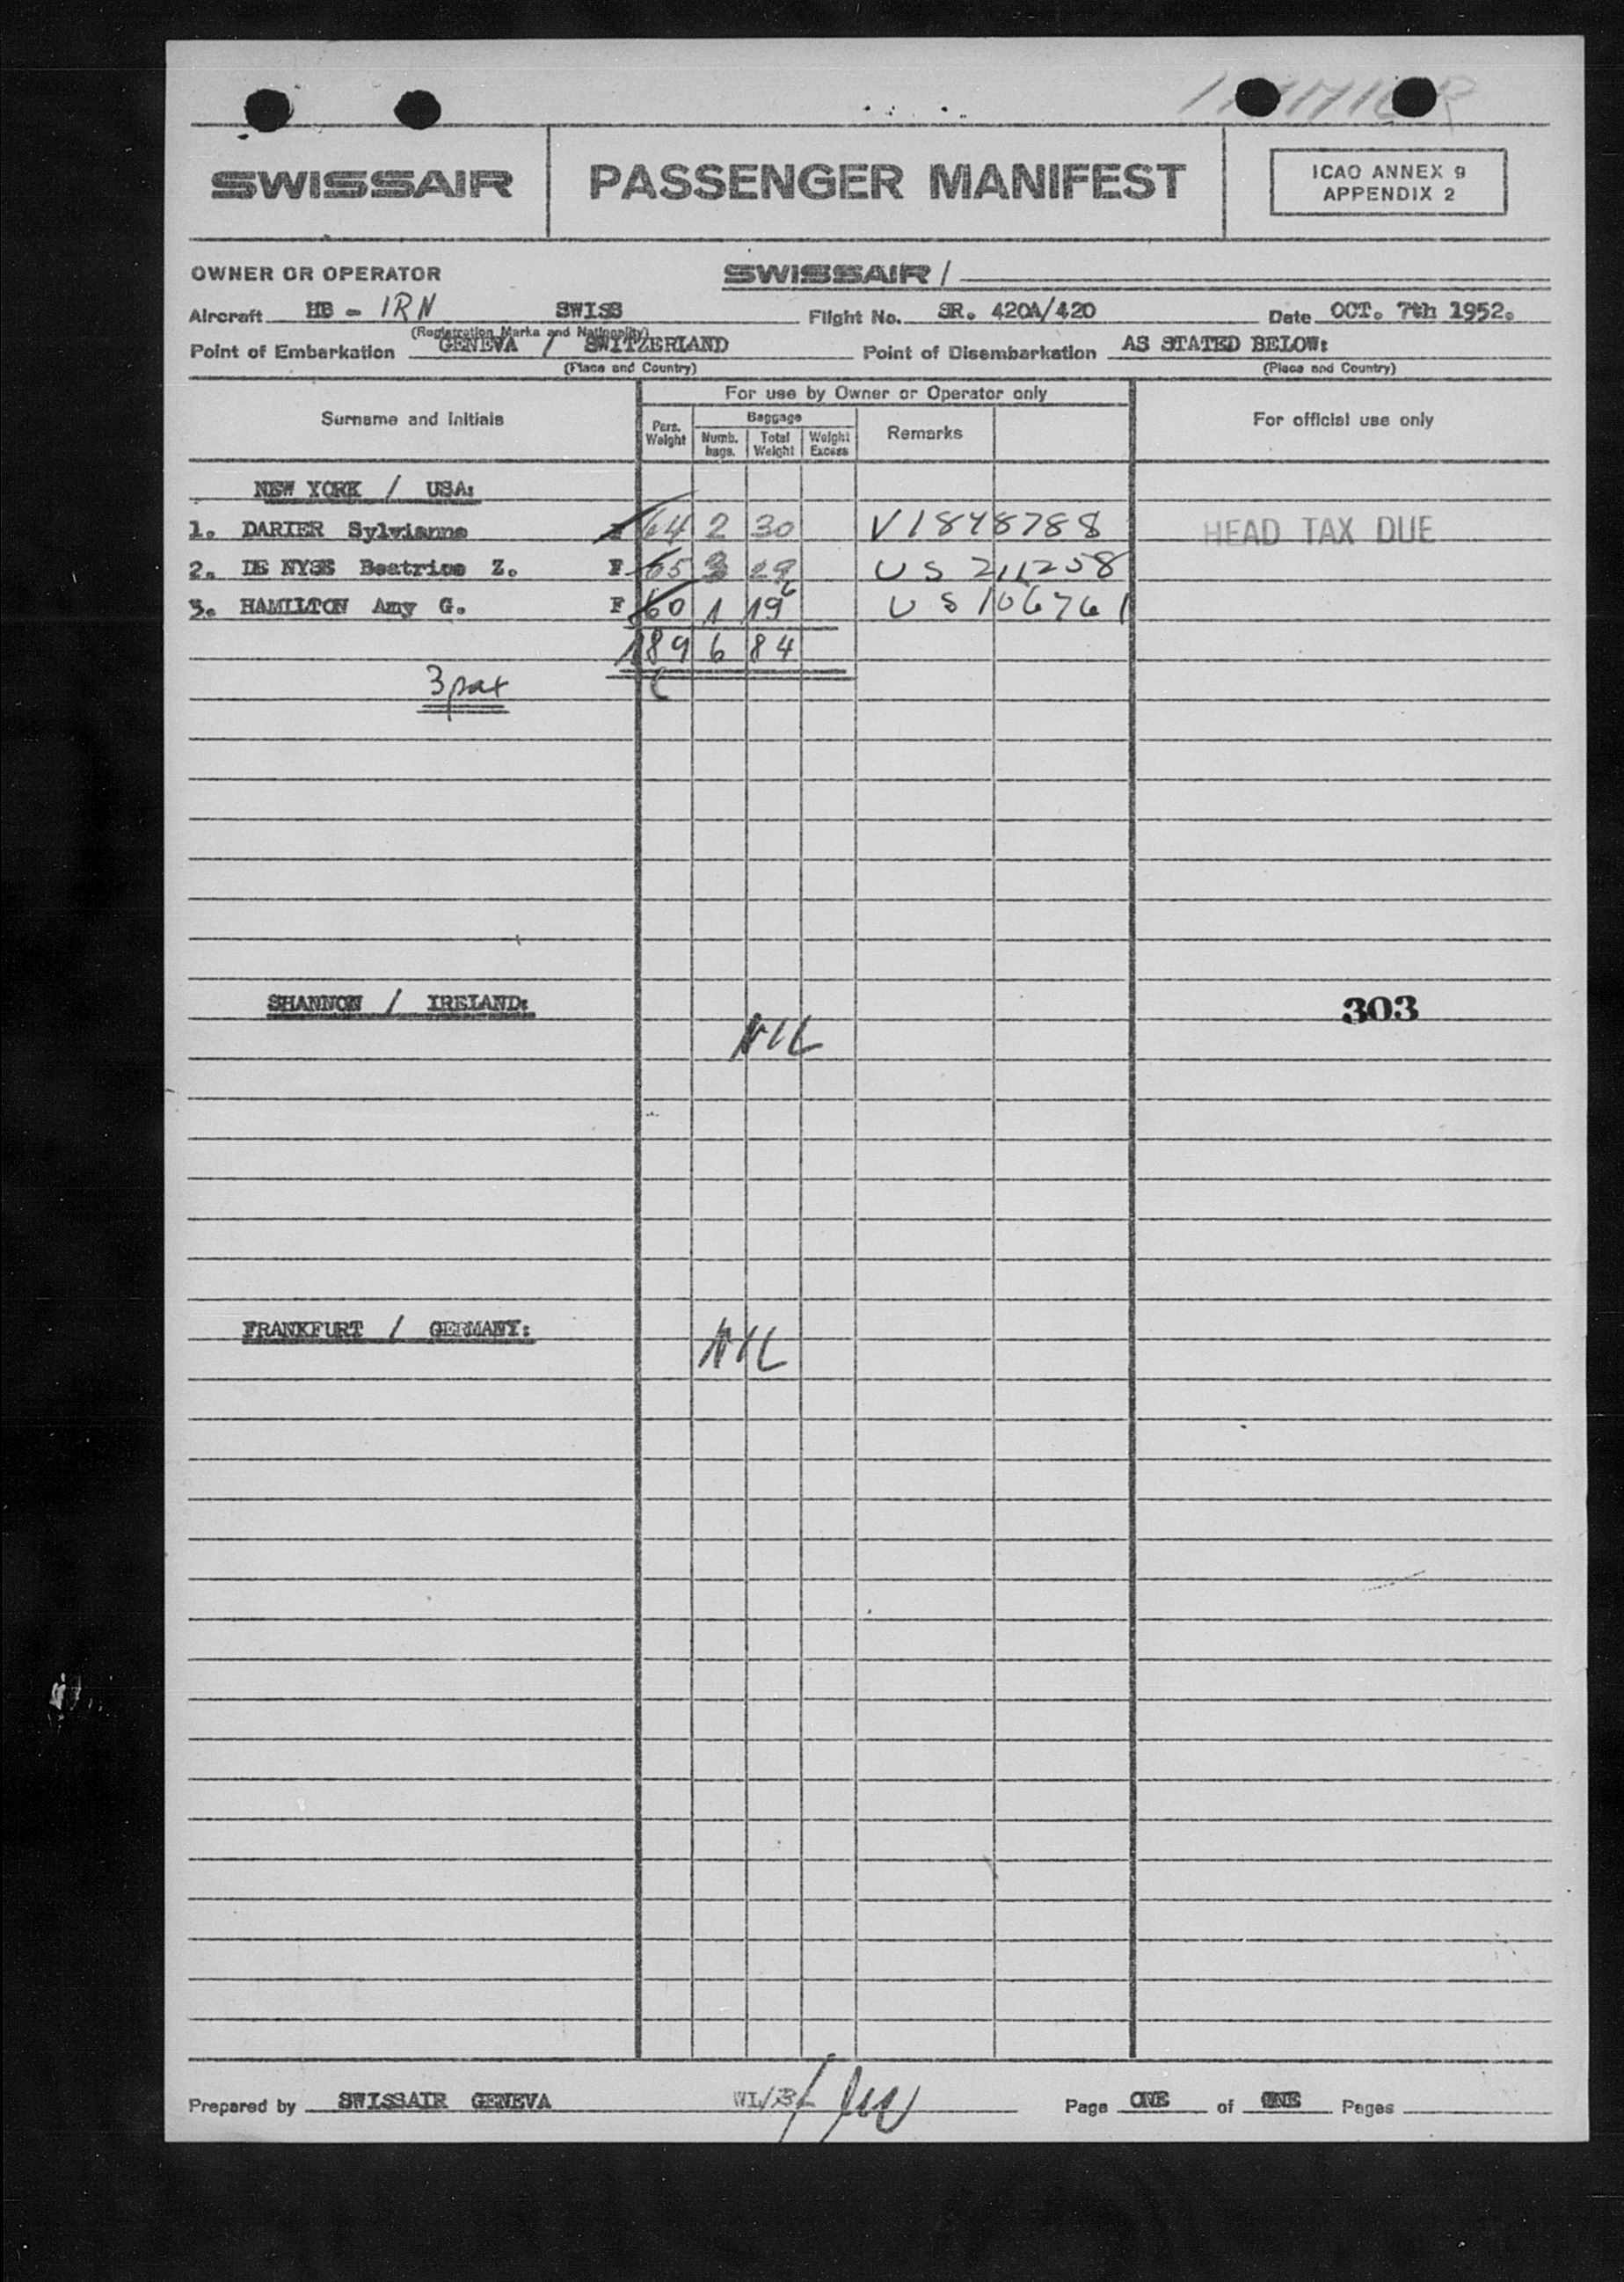 SWISSAIR
PASSENGER MANIFEST
ICAO ANNEX 9
APPENDIX 2
OWNER OR OPERATOR SWISSAIR /
Aircraft HB - IRN SWISS Flight No. SR. 420A/420 Date OCT. 7th 1952.
(Registration Marks and Nationality)
Point of Embarkation GENEVA / SWITZERLAND Point of Disembarkation AS STATED BELOW:
(Place and Country) (Place and Country)
For use by Owner or Operator only
Surname and Initials Pers. Weight Baggage Numb. bags. Total Weight Weight Excess Remarks For official use only
NEW YORK / USA:
1. DARIER Sylvianne 64 2 30 V1848788 HEAD TAX DUE
2. DE NYSE Beatrice Z. F 65 3 29 US 211258
3. HAMILTON Amy G. F 60 1 19 US 106761
189 6 84
3 pax
SHANNON / IRELAND: 303
NIL
FRANKFURT / GERMANY:
NIL
Prepared by SWISSAIR GENEVA Page ONE of ONE Pages